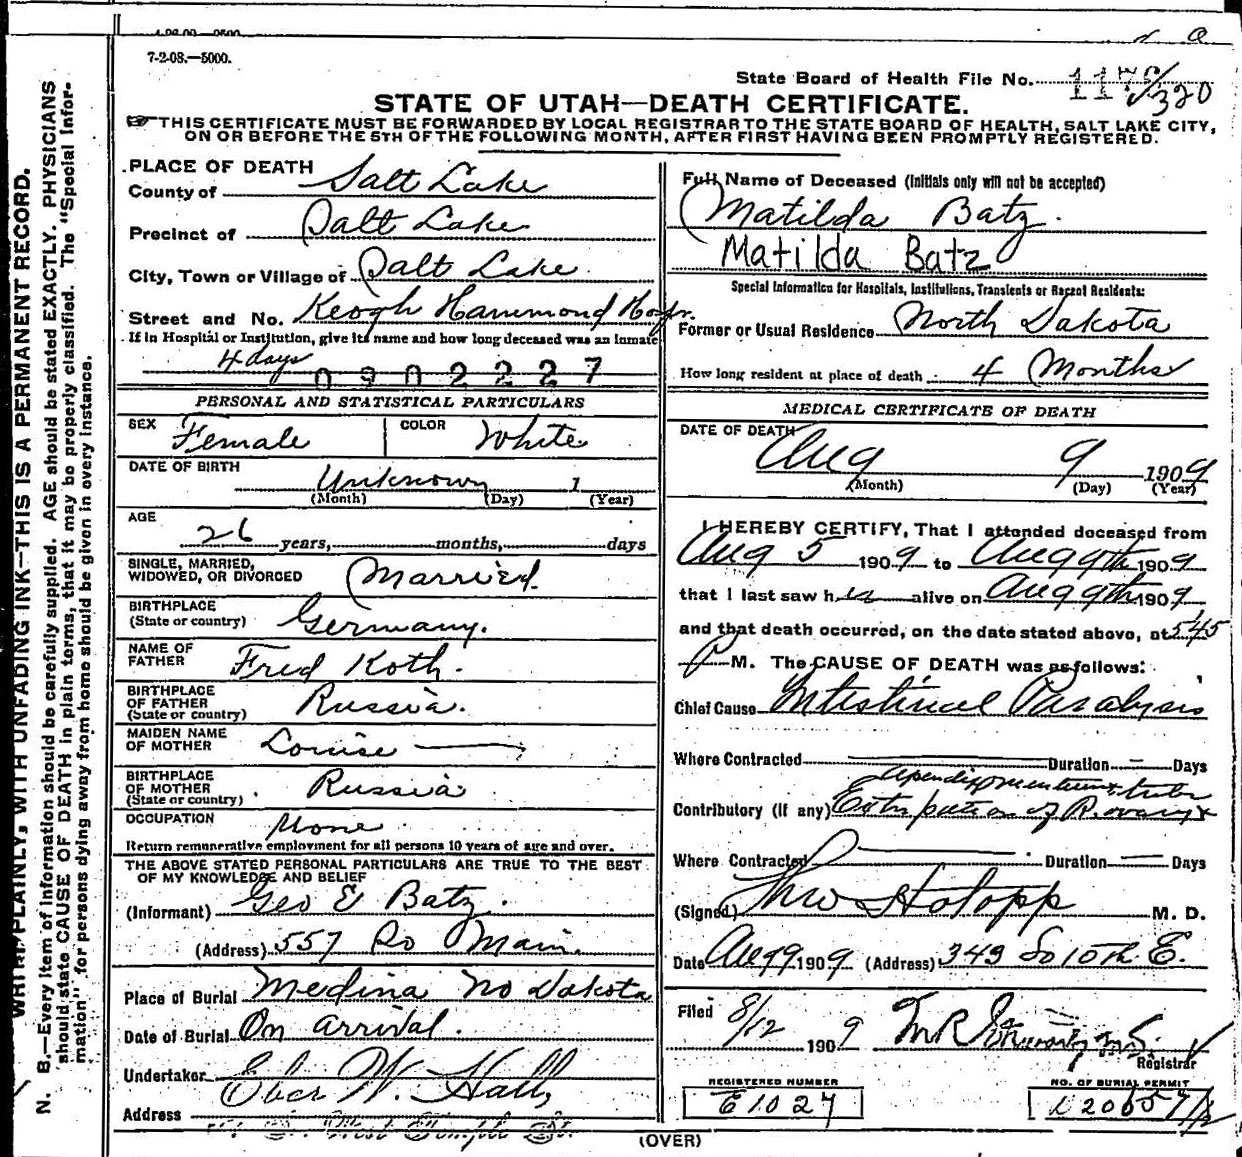 7-2-08.—5000.
State Board of Health File No.
320
STATE OF UTAH—DEATH CERTIFICATE.
THIS CERTIFICATE MUST BE FORWARDED BY LOCAL REGISTRAR TO THE STATE BOARD OF HEALTH, SALT LAKE CITY,
ON OR BEFORE THE 5TH OF THE FOLLOWING MONTH, AFTER FIRST HAVING BEEN PROMPTLY REGISTERED.
WRITE PLAINLY, WITH UNFADING INK—THIS IS A PERMANENT RECORD.
N. B.—Every item of information should be carefully supplied. AGE should be stated EXACTLY. PHYSICIANS
should state CAUSE OF DEATH in plain terms, that it may be properly classified. The "Special Infor-
mation" for persons dying away from home should be given in every instance.
PLACE OF DEATH
County of Salt Lake
Precinct of Salt Lake
City, Town or Village of Salt Lake
Street and No. Keogh Hammond
If in Hospital or Institution, give its name and how long deceased was an inmate
4 days
0902227
PERSONAL AND STATISTICAL PARTICULARS
SEX Female COLOR White
DATE OF BIRTH Unknown 1
(Month) (Day) (Year)
AGE
26 years, months, days
SINGLE, MARRIED,
WIDOWED, OR DIVORCED Married.
BIRTHPLACE
(State or country) Germany.
NAME OF
FATHER Fred Koth.
BIRTHPLACE
OF FATHER
(State or country) Russia.
MAIDEN NAME
OF MOTHER Louise —
BIRTHPLACE
OF MOTHER
(State or country) Russia
OCCUPATION None
Return remunerative employment for all persons 10 years of age and over.
THE ABOVE STATED PERSONAL PARTICULARS ARE TRUE TO THE BEST
OF MY KNOWLEDGE AND BELIEF
(Informant) Geo E Batz.
(Address) 557 So Main.
Place of Burial Medina No Dakota
Date of Burial On arrival.
Undertaker Eber W. Hall,
Address West Temple St.
Full Name of Deceased (Initials only will not be accepted)
Matilda Batz.
Matilda Batz
Special Information for Hospitals, Institutions, Transients or Recent Residents:
Former or Usual Residence North Dakota
How long resident at place of death 4 Months
MEDICAL CERTIFICATE OF DEATH
DATE OF DEATH
Aug 9 1909
(Month) (Day) (Year)
I HEREBY CERTIFY, That I attended deceased from
Aug 5 1909 to Aug 9th 1909
that I last saw her alive on Aug 9th 1909
and that death occurred, on the date stated above, at 545
P M. The CAUSE OF DEATH was as follows:
Chief Cause Intestinal Paralysis
Where Contracted — Duration — Days
Contributory (if any) Extirpation of R. ovary &
Where Contracted — Duration — Days
(Signed) Theo Holopp M. D.
Date Aug 9 1909 (Address) 343 So 10th E.
Filed 8/12 1909
Registrar
REGISTERED NUMBER
E1027
NO. OF BURIAL PERMIT
(OVER)